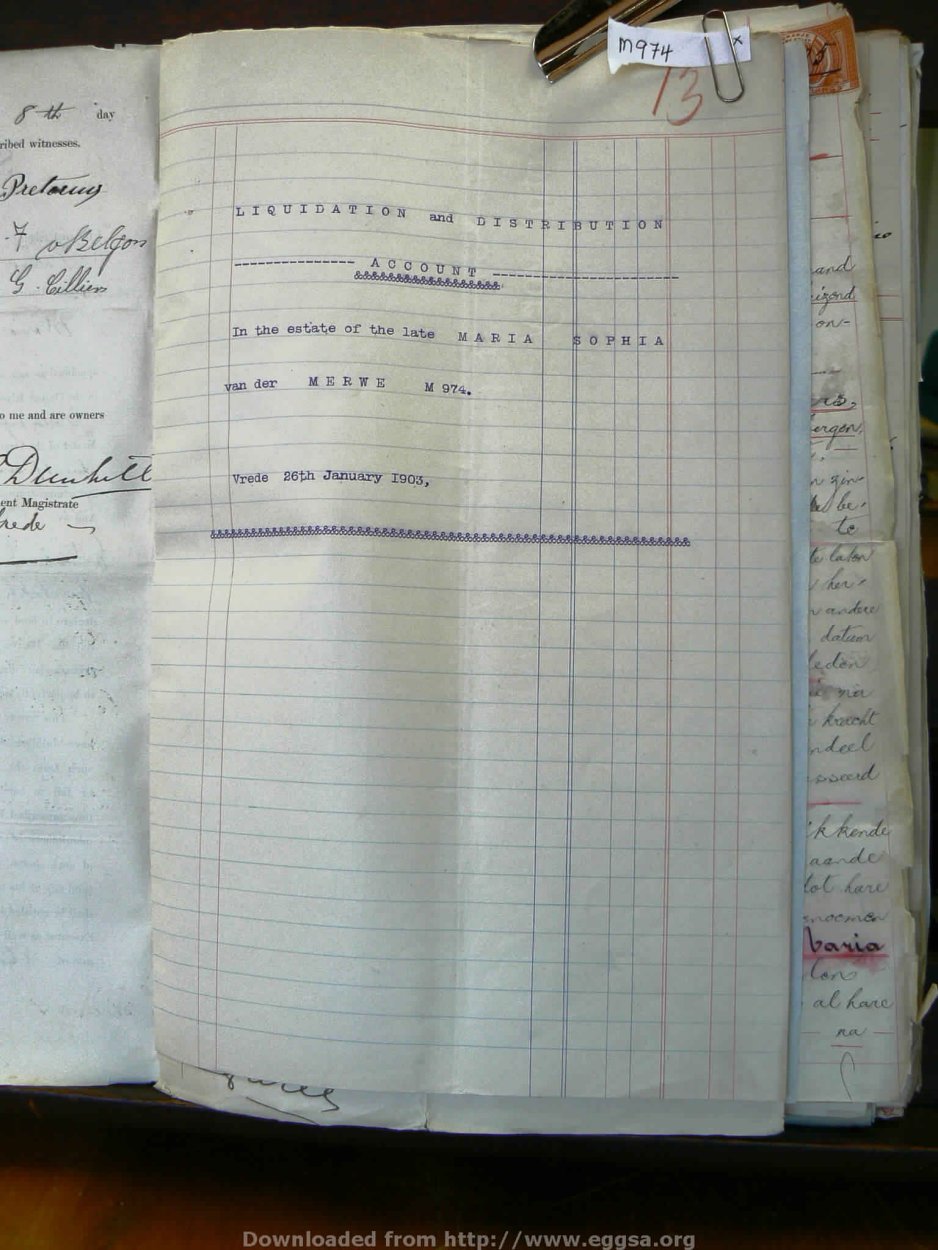 8th day
ribed witnesses.
Pretorius
G. Cilliers
o me and are owners
ent Magistrate
rede
M974 x
13
LIQUIDATION and DISTRIBUTION
---------------- ACCOUNT -------------------------
&&&&&&&&&&&&&&&&&&&&&&&
In the estate of the late MARIA SOPHIA
van der MERWE M 974.
Vrede 26th January I903,
&&&&&&&&&&&&&&&&&&&&&&&&&&&&&&&&&&&&&&&&&&&&&&&&&&&&&&&&&&&&&&&&&&&&&&
and
on-
ergon,
be-
te
te laten
her-
andere
datum
kracht
ndeel
kkende
aande
tot hare
baria
al hare
na
Downloaded from http://www.eggsa.org